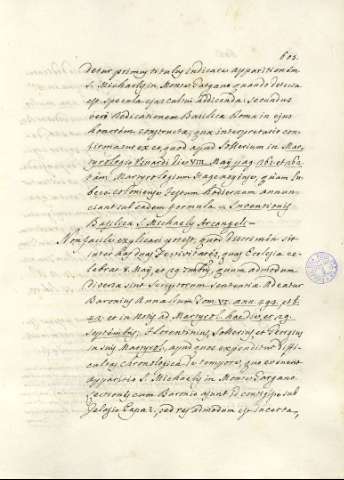 603.
detur primus titulus indicare apparitionem
S. Michaelis in Monte Gargano quando
et specula ejus cultui addicenda. Secundus
vero Dedicationem Basilicæ Roma in ejus
honorem constructa; qua interpretatio con-
firmatur ex eo quod apud Sollerium in Mar-
tyrologio Usuardi die VIII. Maij pag. 262
Martyrologium quam
Festum hodiernum annun-
ciant sub eadem formula = Inventionis
Basilicæ S. Michaelis Arcangeli =
Non facile explicari potest, quod discrimen sit
inter has duas Festivitates, quas Ecclesia ce-
lebrat 8. Maij, et 29. 7mbris, quemadmodum
diversa sint Scriptorum Sententia Adeatur
Baronius Annalium Tom. VI. ann. 493.
et in Notis ad Martyrol. hac die, et 29.
Septembris; Florentinius, Sollerius, et Georgius
in suis Martyrol. apud quos expenditur diffi-
cultas chronologica de tempore, quo evenerit
apparitio S. Michaelis in Monte Gargano.
Lectiones cum Baronio ajunt id contigisse sub
Gelasio Papa, sed res admodum est incerta,